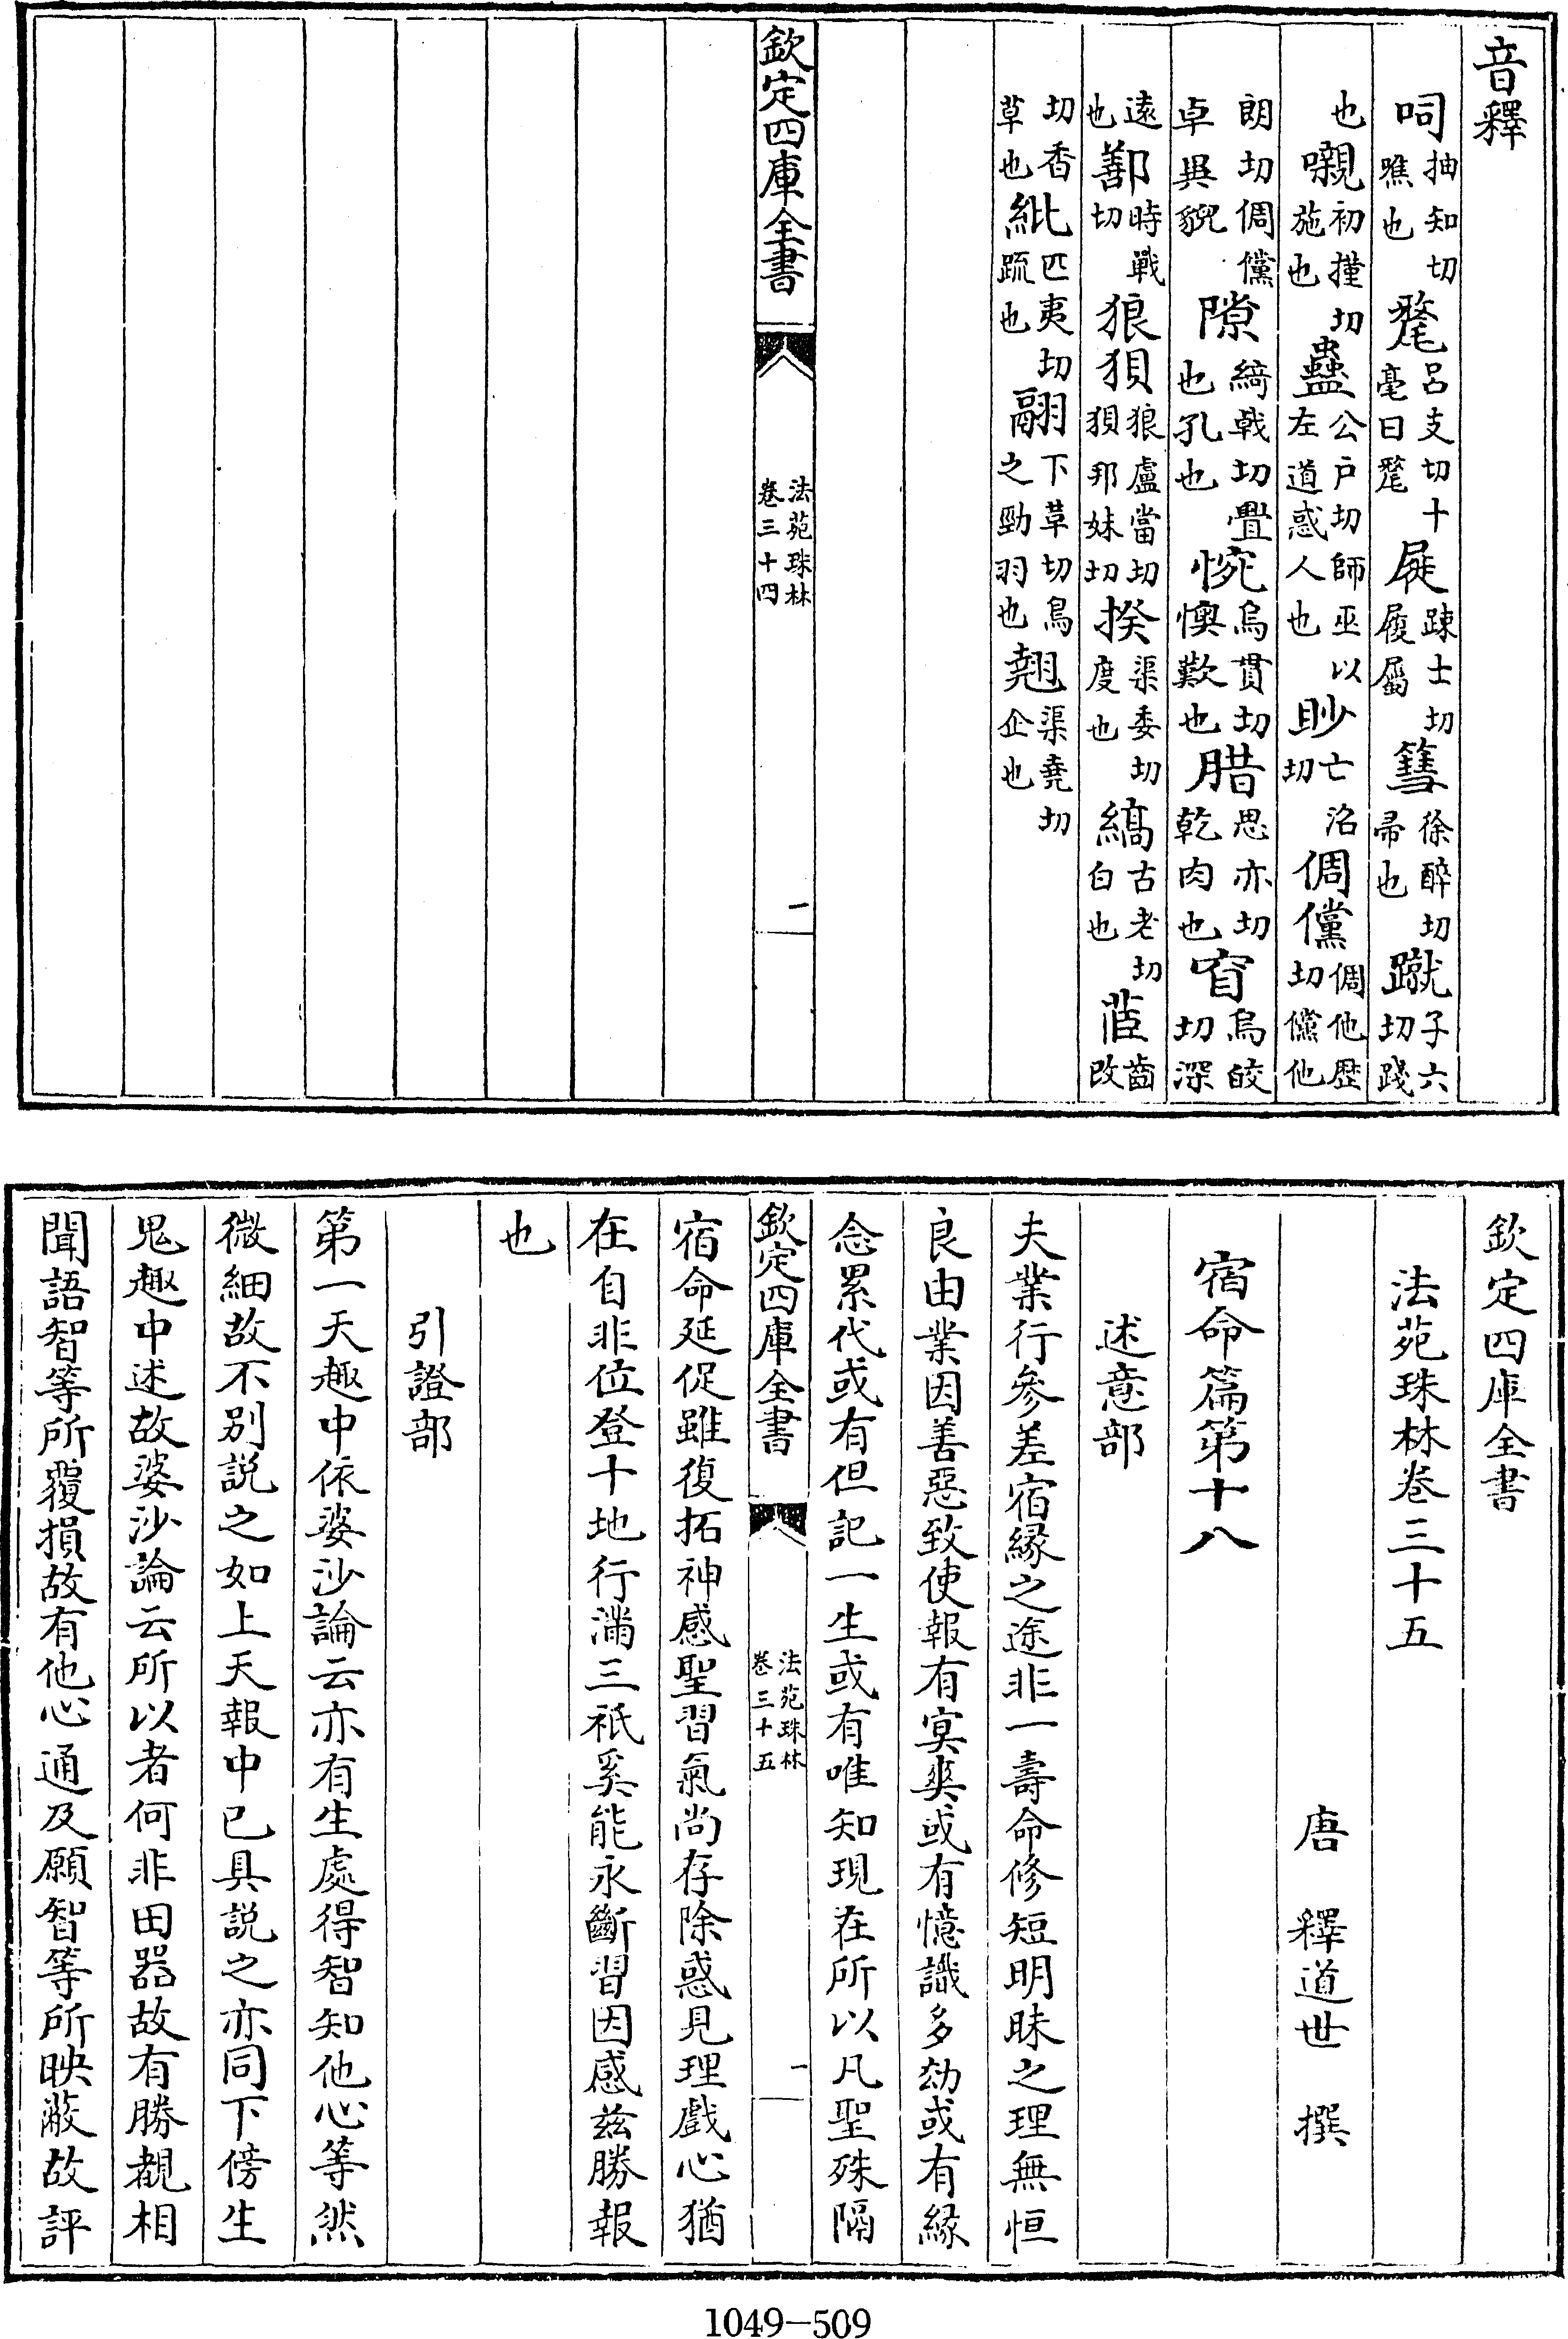 音釋
呞抽知切噍也氂呂支切十毫曰氂屣踈士切履屬篲徐醉切帚也蹴子六切踐
也嚫初堇切施也蠱公戶切師巫以左道惑人也眇亡沼切倜儻倜他歷切儻他
朗切倜儻卓異貌隙綺戟切舋也孔也惋烏貫切懊歎也腊思亦切乾肉也窅烏皎切深
遠也鄯時戰切狼狽狼盧當切狽邦妹切揆渠委切度也縞古老切白也茝齒改
切香草也紕匹夷切䟽也翮下草切鳥之勁羽也翹渠堯切企也
欽定四庫全書
法苑珠林
卷三十四
一
欽定四庫全書
法苑珠林卷三十五
唐 釋道世 撰
宿命篇第十八
述意部
夫業行參差宿緣之途非一壽命修短明昧之理無恒
良由業因善惡致使報有冥爽或有憶識多劫或有緣
念累代或有但記一生或有唯知現在所以凡聖殊隔
欽定四庫全書
法苑珠林
卷三十五
一
宿命延促雖復拓神感聖習氣尚存除惑見理戲心猶
在自非位登十地行滿三祇奚能永斷習因感茲勝報
也
引證部
第一天趣中依婆沙論云亦有生處得智知他心等然
微細故不別說之如上天報中已具說之亦同下傍生
鬼趣中述故婆沙論云所以者何非田器故有勝覩相
聞語智等所覆損故有他心通及願智等所映蔽故評
1049-509